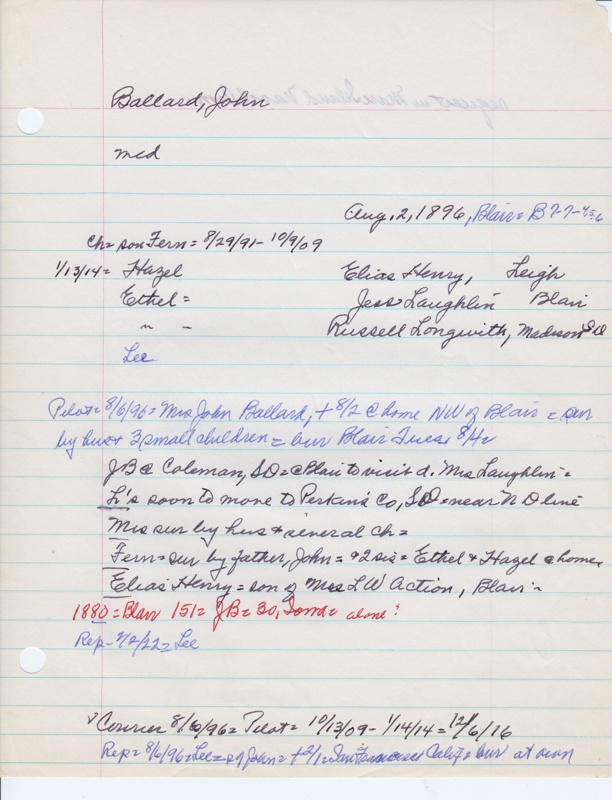 Ballard, John
mcd
Aug. 2, 1896, Blair = B 7-7-
ch = son Fern = 8/29/91 - 10/9/09
1/13/14 = Hazel Elias Henry, Leigh
Ethel = Jess Laughlin Blair
" " Russell Longwith, Madison SD
Lee
Pilot = 8/6/96 = Mrs John Ballard, + 8/2 @ home NW of Blair = sur
by hus + 3 small children = bur Blair Tues 8/4 =
JB @ Coleman, SD = @ Blair to visit d. Mrs Laughlin =
L's soon to move to Perkins Co, SD = near N D line
Mrs sur by hus + several ch =
Fern = sur by father, John = + 2 sis = Ethel + Hazel @ home
Elias Henry = son of Mrs L W Action, Blair =
1880 = Blair 151 = JB = 30, Iowa = alone?
Rep - 2/22 = Lee
Courier 8/6/96 = Pilot = 10/13/09 - 1/14/14 = 12/6/16
Rep = 8/6/96 = Lee = s of John = + 2/1 = San Francisco Calif = bur at